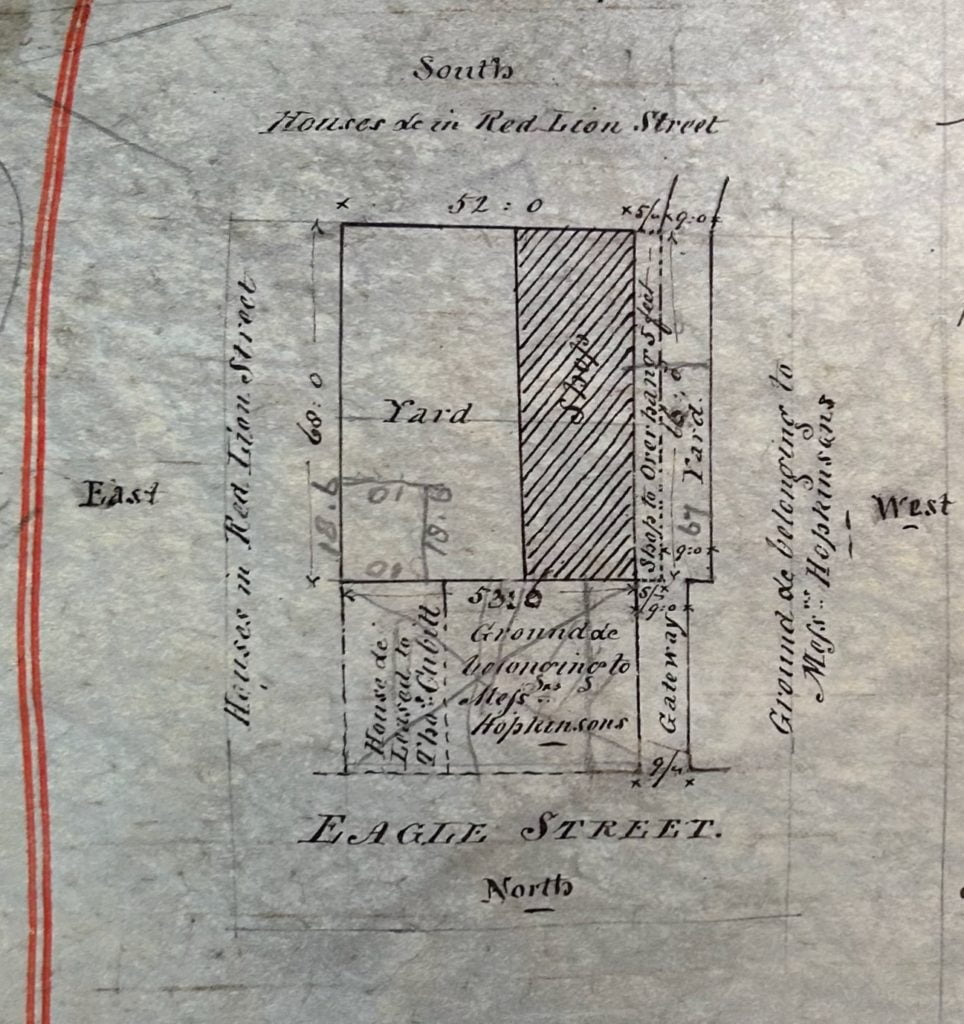 South
Houses &c in Red Lion Street
52 : 0
5/"
9:0
Houses in Red Lion Street
68 : 0
Yard
Shop
Shop to Overhang 5 feet
Yard
67
East
West
Ground &c belonging to
Mess.rs Hopkinsons
18.6
10
18.8
10
9:0
53:0
5/"
9:0
House &c
Leased to
Tho.s Cubitt
Ground &c
belonging to
Mess.rs
Hopkinsons
Gateway
9/"
EAGLE STREET.
North